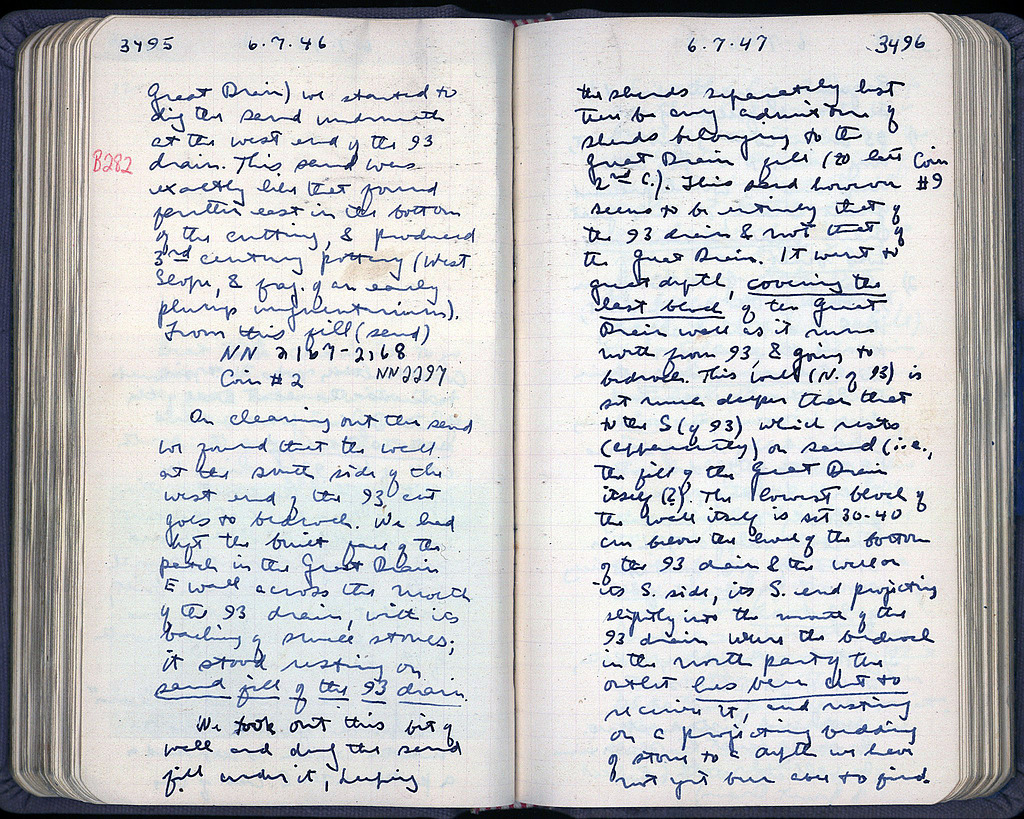 3495 6.7.46
Great Drain) we started to
dig the sand underneath
at the west end of the 93
B282
drain. This sand was
exactly like that found
further east in the bottom
of the cutting, & produced
3rd century pottery (West
Slope, & frag. of an early
plump unguentarium).
From this fill (sand)
NN 2167-2168
Coin #2 NN2297
On cleaning out this sand
we found that the wall
at the south side of the
west end of the 93 cut
goes to bedrock. We had
kept the built face of the
patch in the Great Drain
E wall across the mouth
of the 93 drain, with its
backing of small stones;
it stood resting on
sand fill of the 93 drain.
We took out this bit of
wall and dug the sand
fill under it, keeping
6.7.47 3496
the sherds separately lest
there be any admixture of
sherds belonging to the
Great Drain fill (to late Coin
2nd C.). This sand however #9
seems to be entirely that of
the 93 drain & not that of
the Great Drain. It went to
great depth, covering the
last block of the Great
Drain wall as it runs
north from 93, & going to
bedrock. This wall (N. of 93) is
set much deeper than that
to the S (of 93) which rests
(apparently) on sand (i.e.,
the fill of the Great Drain
itself (?). The lowest block of
the wall itself is set 30-40
cm below the level of the bottom
of the 93 drain & the wall on
its S. side, its S. end projecting
slightly into the mouth of the
93 drain where the bedrock
in the north part of the
outlet has been cut to
receive it, and resting
on a projecting bedding
of stone to a depth we have
not yet been able to find.